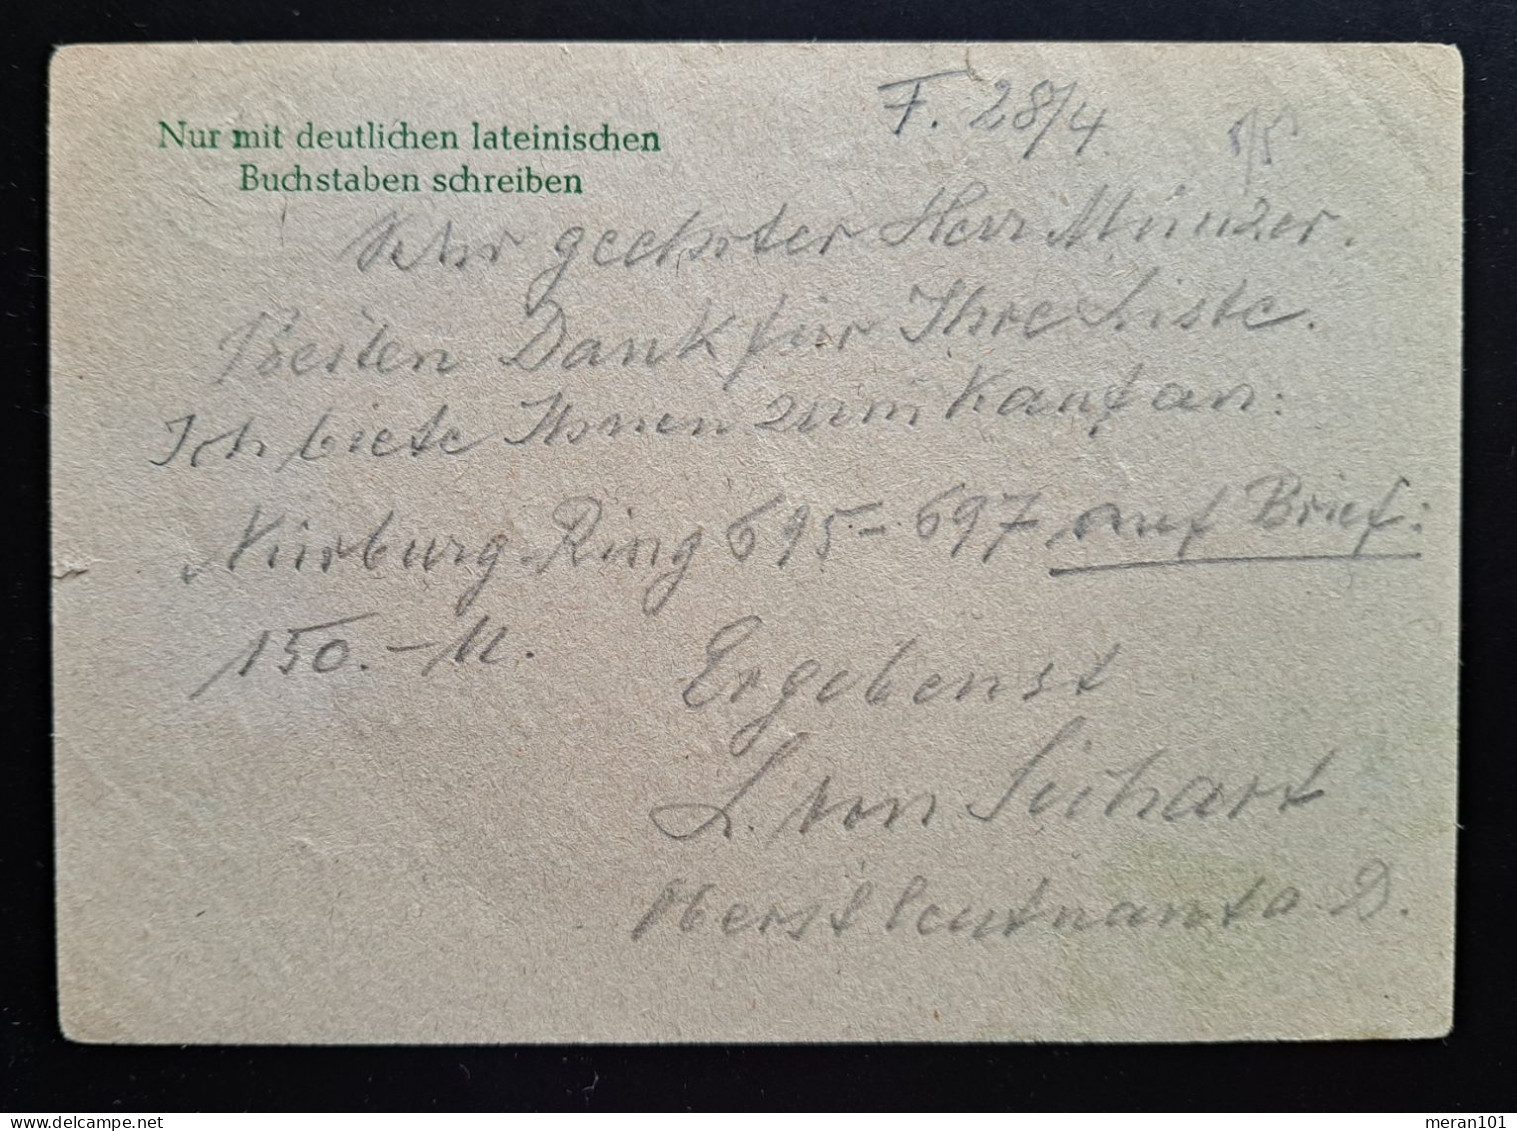 Nur mit deutlichen lateinischen
Buchstaben schreiben
F. 28/4
Sehr geehrter Herr Münzer.
Besten Dank für Ihre Liste.
Ich biete Ihnen zum Kauf an:
Nürburg-Ring 695-697 auf Brief:
150.- M.
Ergebenst
L. von
Oberstleutnant a. D.
meran101